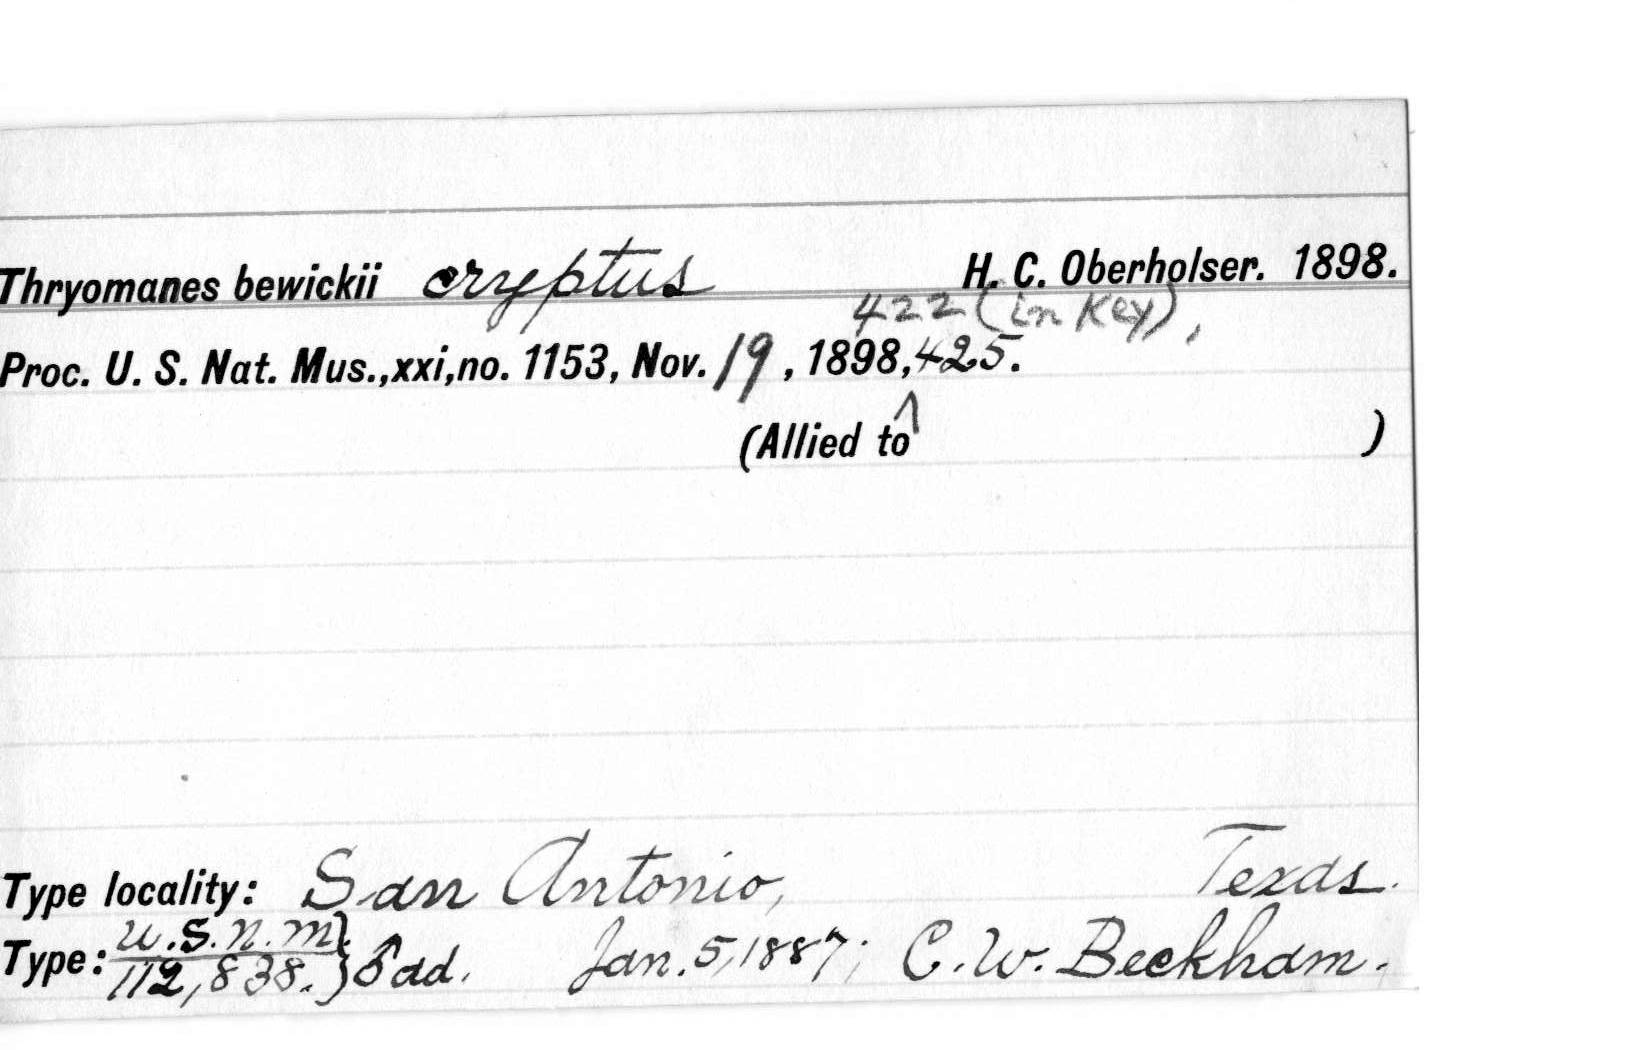 Thryomanes bewickii cryptus H. C. Oberholser. 1898.
422 (in Key),
Proc. U. S. Nat. Mus.,xxi,no. 1153, Nov. 19, 1898, 425.
(Allied to )
Type locality: San Antonio, Texas.
Type: U.S.N.M. 112,838. } ♂ ad. Jan. 5, 1887; C. W. Beckham.